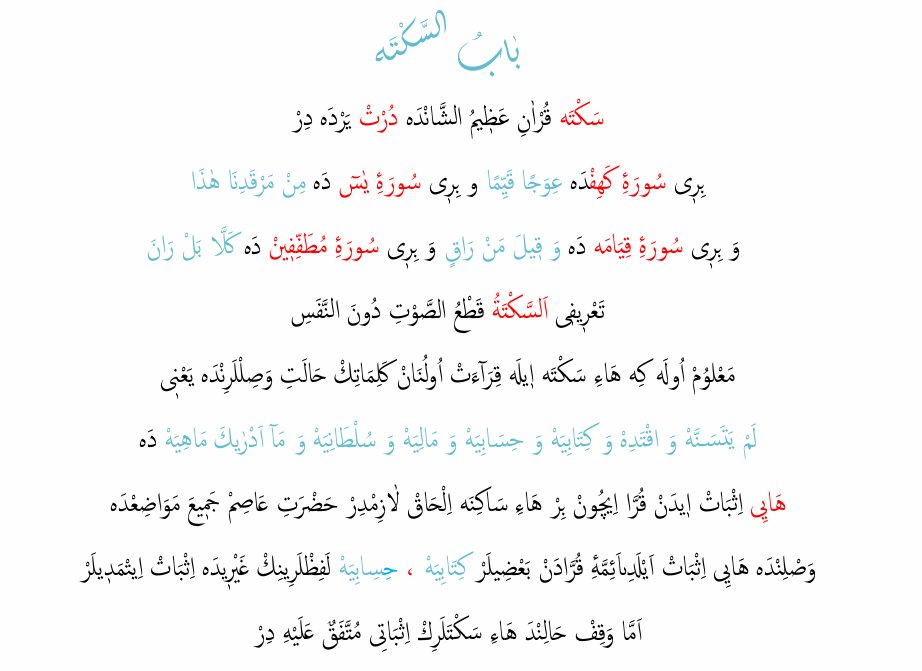 بَابُ السَّكْتَه
سَكْتَه قُرْاٰنِ عَظٖيمُ الشَّانْدَه دُرْتْ يَرْدَه دِرْ
بِرٖى سُورَۀِ كَهِفْدَه عِوَجًا قَيِّمًا و بِرٖى سُورَۀِ يٰسٓ دَه مِنْ مَرْقَدِنَا هٰذَا
وَ بِرٖى سُورَۀِ قِيَامَه دَه وَ قٖيلَ مَنْ رَاقٍ وَ بِرٖى سُورَۀِ مُطَفِّفٖينْ دَه كَلَّا بَلْ رَانَ
تَعْرٖيفٖى اَلسَّكْتَةُ قَطْعُ الصَّوْتِ دُونَ النَّفَسِ
مَعْلوُمْ اُولَه كِه هَاءِ سَكْتَه اٖيلَه قِرَآءَتْ اُولُنَانْ كَلِمَاتِكْ حَالَتِ وَصِلْلَرِنْدَه يَعْنٖى
لَمْ يَتَسَنَّهْ وَ اقْتَدِهْ وَ كِتَابِيَهْ وَ حِسَابِيَهْ وَ مَالِيَهْ وَ سُلْطَانِيَهْ وَ مَآ اَدْرٰيكَ مَاهِيَهْ دَه
هَايِى اِثْبَاتْ اٖيدَنْ قُرَّا اٖيچُونْ بِرْ هَاءِ سَاكِنَه اِلْحَاقْ لَازِمْدِرْ حَضْرَتِ عَاصِمْ جَمٖيعَ مَوَاضِعْدَه
وَصْلِنْدَه هَايِى اِثْبَاتْ اَيْلَدِىاَئِمَّۀِ قُرَّادَنْ بَعْضِيلَرْ كِتَابِيَهْ ، حِسِابِيَهْ لَفِظْلَرِينِكْ غَيْرٖيدَه اِثْبَاتْ اِيتْمَدٖيلَرْ
اَمَّا وَقِفْ حَالِنْدَ هَاءِ سَكْتَلَرِكْ اِثْبَاتِى مُتَّفَقٌ عَلَيْهِ دِرْ